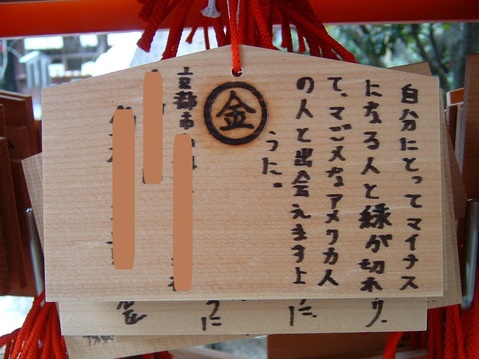 自分にとってマイナス
になる人と縁が切れ
て、マジメなアメリカ人
の人と出会えますよ
うた。
金
京都市